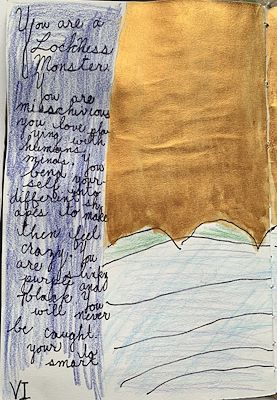 You are a
Lockness
Monster
You are
misschivious
you love play
ying with
humans
minds, you
bend your-
self into
different sh
apes to make
then feel
crazy. You
are pinky
purple and
black you
will never
be caught.
your to
smart
VI